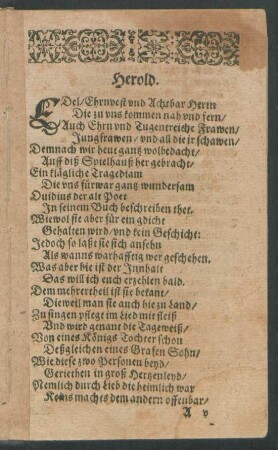 Herold.
EDel/Ehrnvest vnd Achtbar Herrn
Die zu vns kommen nah vnd fern/
Auch Ehrn vnd Tugentreiche Frawen/
Jungfrawen/ vnd all die jr schawen/
Demnach wir heut gantz wolbedacht/
Auff diß Spielhauß her gebracht/
Ein klägliche Tragediam
Die vns fürwar gantz wundersam
Ouidius der alt Poet
In seinem Buch beschreiben thet.
Wiewol sie aber für ein gdicht
Gehalten wird/ vnd kein Geschicht:
Jedoch so laßt sie sich ansehn
Als wanns warhafftig wer geschehen.
Was aber hie ist der Innhalt
Das will ich euch erzehlen bald.
Dem mehrertheil ist sie bekant/
Dieweil man sie auch hie zu Land/
Zu singen pflegt im Lied mit fleiß
Vnd wird genant die Tageweiß/
Von eines Königs Tochter schon
Deßgleichen eines Grafen Sohn/
Wie diese zwo Personen beyd/
Geriethen in groß Hertzenleyd/
Nemlich durch Lieb die heimlich war
Keins macht s dem andern offenbar/
A v